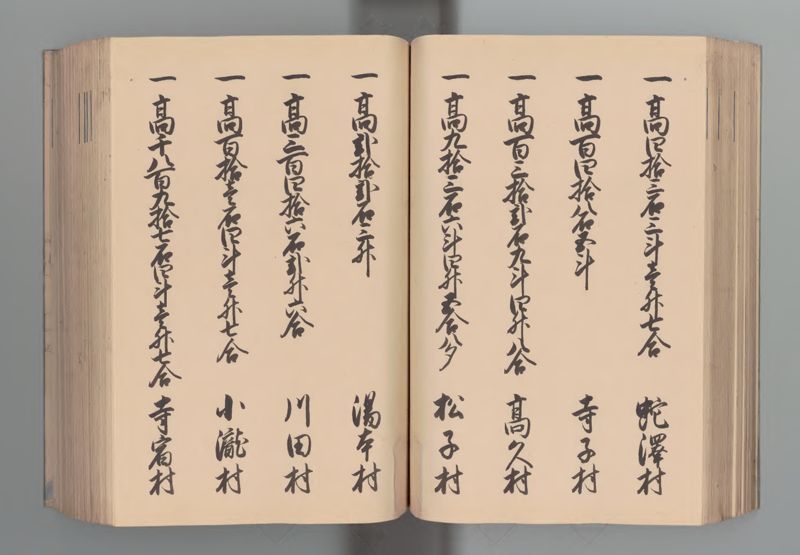 一 高四拾三石三斗壱升七合 蛇澤村
一 高百四拾八石五斗 寺子村
一 高百三拾弐石九斗四升八合 高久村
一 高九拾三石六斗四升五合八夕 松子村
一 高弐拾弐石三升 湯本村
一 高三百四拾六石弐升六合 川田村
一 高百拾壱石四斗壱升七合 小瀧村
一 高千八百九拾七石四斗壱升七合 寺宿村